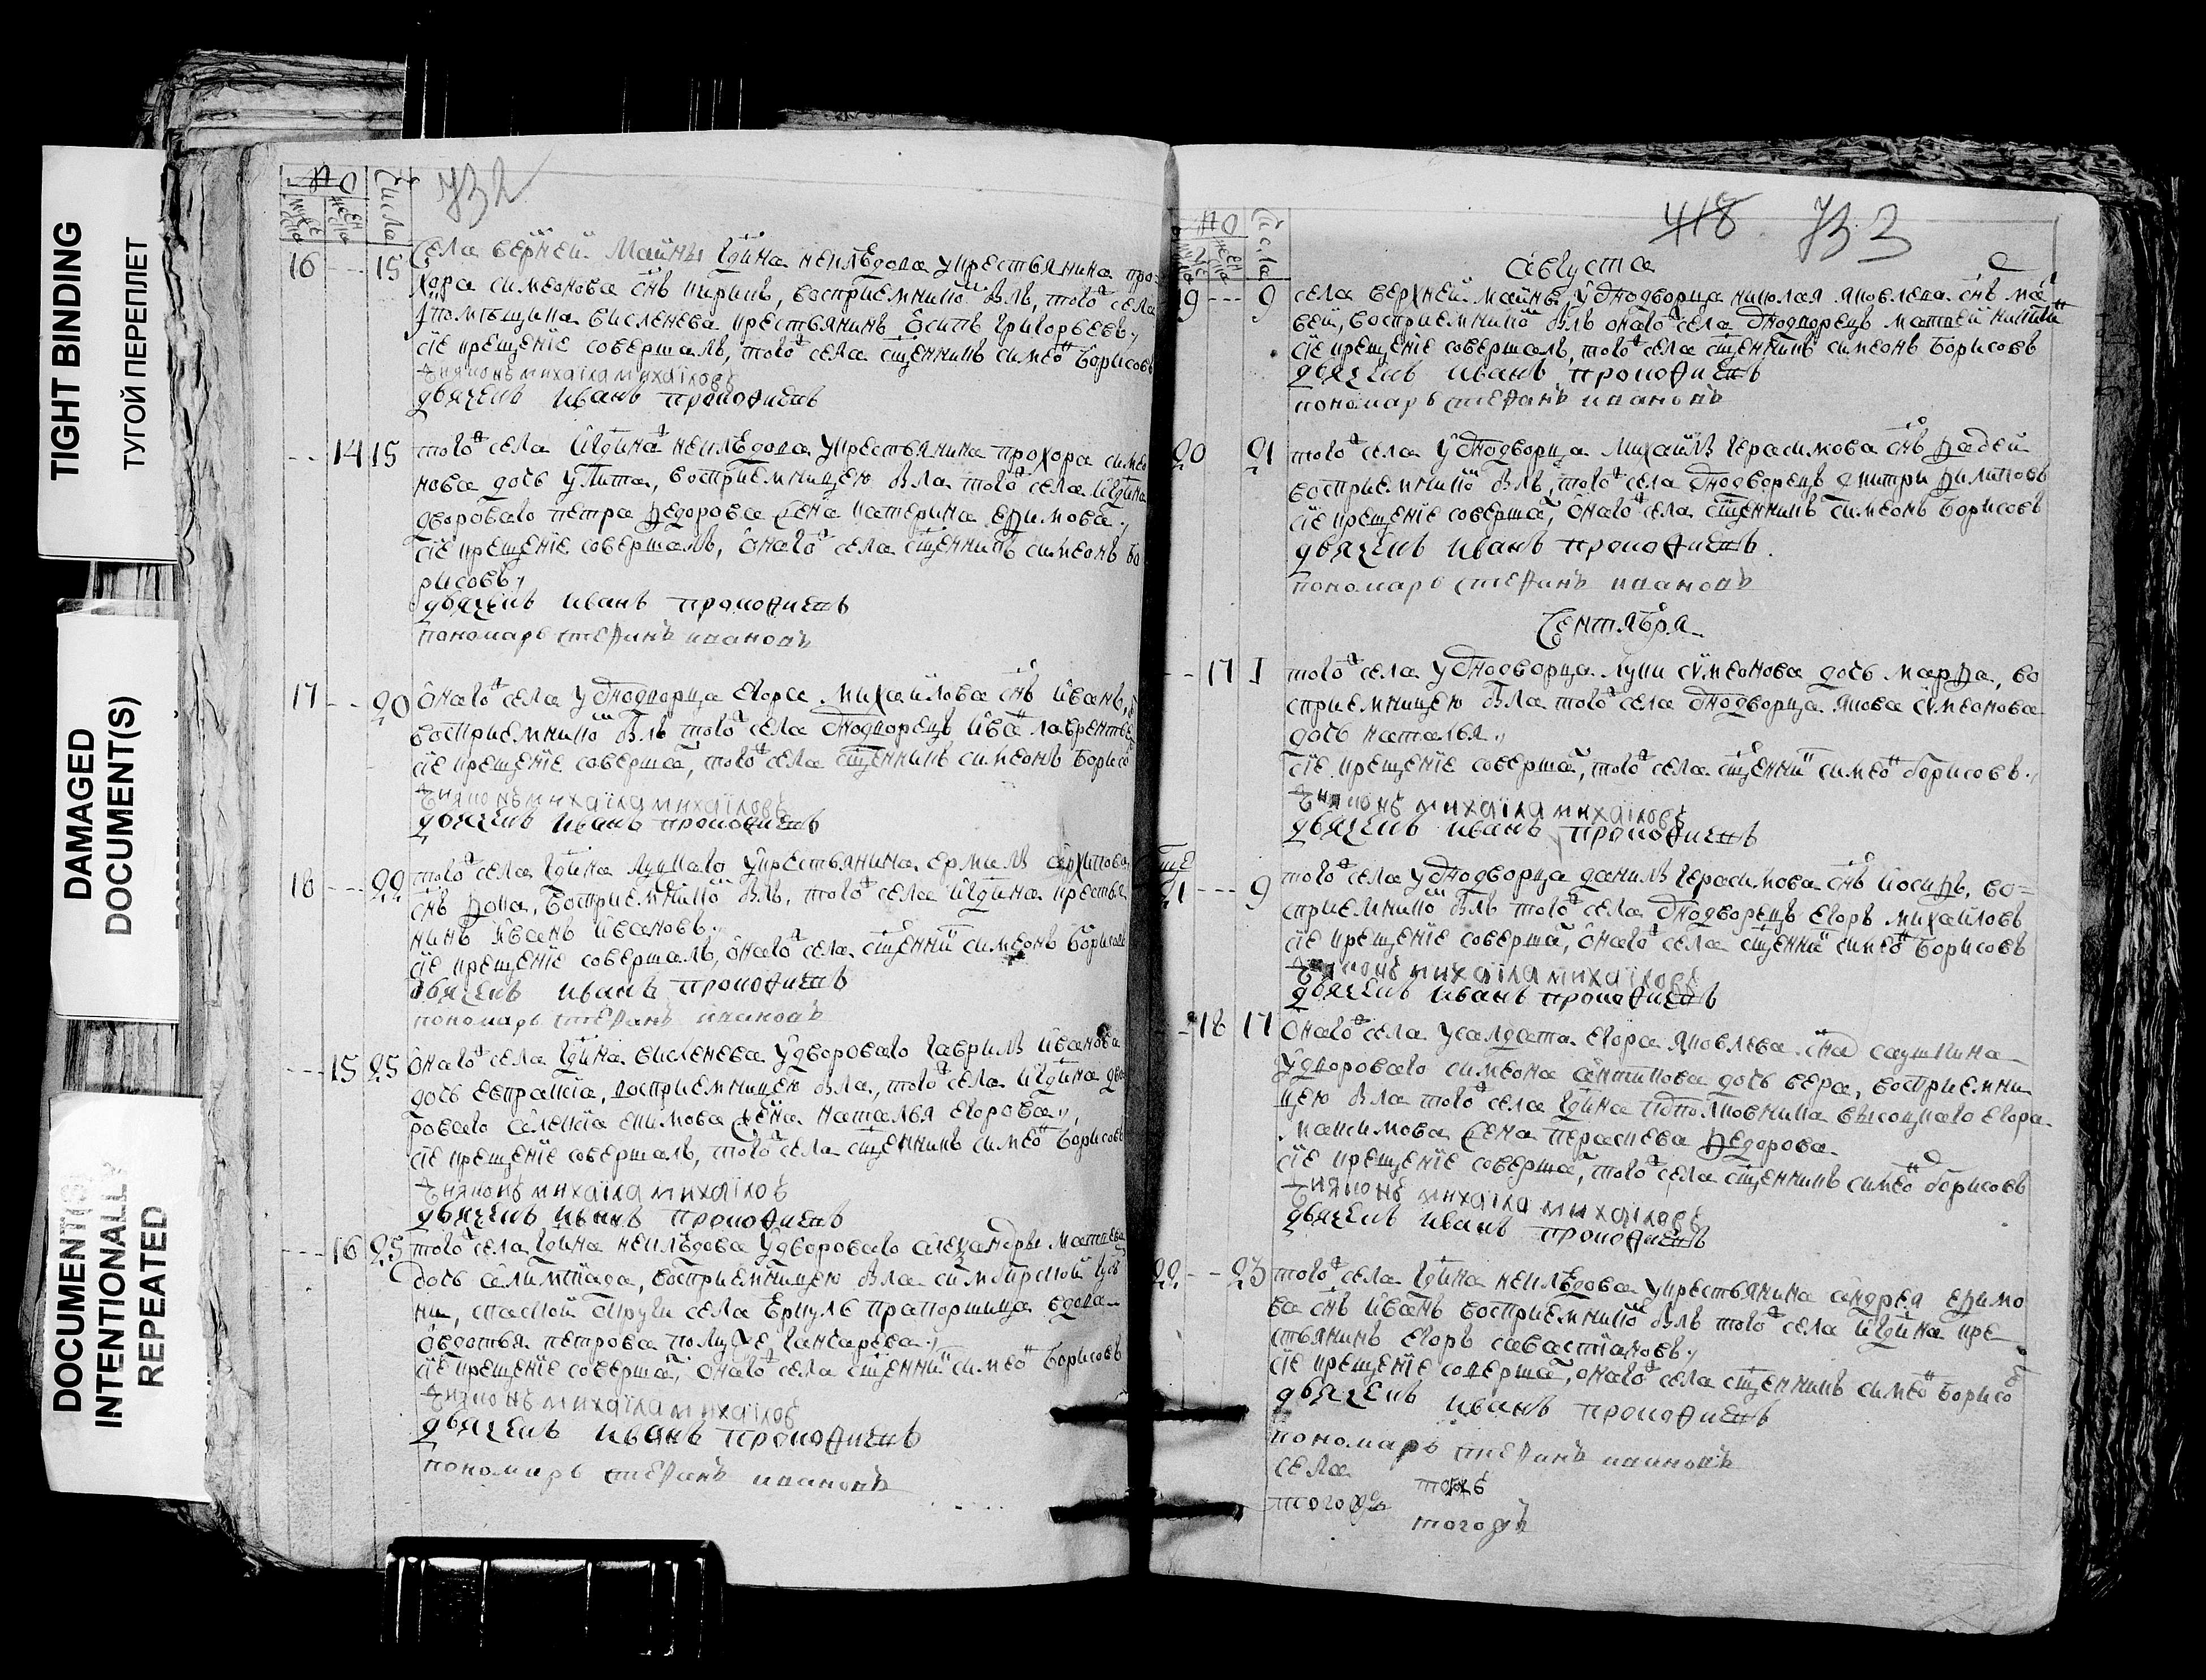 TIGHT BINDING
ТУГОЙ ПЕРЕПЛЕТ
DAMAGED
DOCUMENT(S)
DOCUMENT(S)
INTENTIONALLY
REPEATED
732
No
Числа
16 15 Села верхней Майны гдина неклѣдова у крестьянина про
хора симеонова снъ кирикъ, восприемникō былъ, тогож села
помѣщика висленева крестьянинъ Ѻсипъ григорьевъ
сïе крещенïе совершалъ, тогож села сщенникъ симеō борисовъ
дияконъ михаïла михаïловъ
дьячекъ иванъ прокофиевъ
14 15 тогож села гдина неклѣдова у крестьянина прохора симео
нова дочь улита, восприемницею была тогож села гдина
двороваго петра федорова жена катерина ефимова
сïе крещенïе совершалъ, онагож села сщенникъ симеонъ бо
рисовъ
дьячекъ иванъ прокофиевъ
пономарь стефанъ ивановъ
17 20 Онагож села у однодворца егора михайлова снъ иванъ,
восприемникō былъ тогож села однодворецъ ива лаврентье
сïе крещенïе соверша, тогож села сщенникъ симеонъ борисо
дияконъ михаïла михаïловъ
дьячекъ иванъ прокофиевъ
18 22 тогож села гдина у крестьянина ермилы архипова
снъ фока, восприемникō былъ, тогож села гдина крестья
нинъ иванъ ивановъ
сïе крещенïе совершалъ, онагож села сщенни симеонъ борисовъ
дьячекъ иванъ прокофиевъ
пономарь стефанъ ивановъ
15 25 Онагож села гдина висленева у двороваго гаврилы иванова
дочь евпраксïа, восприемницею была, тогож села гдина дво
роваго алексïа екимова жена наталья егорова
сïе крещенïе совершалъ, тогож села сщенникъ симеō борисовъ
дияконъ михаïла михаïлов
дьячекъ иванъ прокофиевъ
16 25 тогож села гдина неклѣдова у двороваго александры матвеева
дочь алимпïада, восприемницею была симбирской губ
ни, села прапорщица вдова
авдотья петрова
сïе крещенïе соверша, онагож села сщенни симеō борисовъ
дияконъ михаïла михаïлов
дьячекъ иванъ прокофиевъ
пономарь стефанъ ивановъ
418 733
No
Числа
августа
19 9 села верхней майны у однодворца николая яковлева снъ ма
вей, восприемникō былъ онагож села однодворецъ матвей
сïе крещенïе совершалъ, тогож села сщенникъ симеонъ борисовъ
дьячекъ иванъ прокофиевъ
пономарь стефанъ ивановъ
20 21 тогож села у однодворца михайлы герасимова снъ фадей
восприемникō былъ, тогож села однодворецъ дмитри филиповъ
сïе крещенïе соверша, онагож села сщенникъ симеонъ борисовъ
дьячекъ иванъ прокофиевъ
пономарь стефанъ ивановъ
Сентября
17 1 тогож села у однодворца луки симеонова дочь марфа, во
сприемницею была тогож села однодворца якова симеонова
дочь наталья
сïе крещенïе соверша, тогож села сщенни симеō борисовъ
дияконъ михаïла михаïловъ
дьячекъ иванъ прокофиевъ
21 9 тогож села у однодворца данилы герасимова снъ иосифъ, во
сприемникō былъ тогож села однодворецъ егоръ михайловъ
сïе крещенïе соверша, онагож села сщенни симеō борисовъ
дияконъ михаïла михаïловъ
дьячекъ иванъ прокофиевъ
18 17 Онагож села у салдата егора яковлева
у двороваго симеона антипова дочь вера, восприемни
цею была тогож села гдина подполковника высоцкаго егора
максимова жена федорова
сïе крещенïе соверша, тогож села сщенникъ симеō борисовъ
дияконъ михаïла михаïловъ
дьячекъ иванъ прокофиевъ
22 23 тогож села гдина неклѣдова у крестьянина андрея ефимо
ва снъ иванъ восприемникō былъ тогож села гдина кре
стьянинъ егоръ савастïановъ
сïе крещенïе соверша, онагож села сщенникъ симеō борисо
дьячекъ иванъ прокофиевъ
пономарь стефанъ ивановъ
села
тогожъ